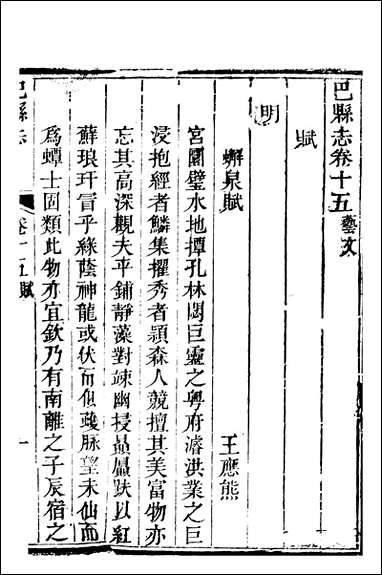 巴縣志卷十五 藝文
賦
明
蠏泉賦
王應熊
宮圍璧水地撢孔林閟巨靈之粤府濬洪業之巨
浸抱經者鱗集擢秀者頴森人競擅其美富物亦
忘其高深觀夫平鋪靜藻對竦幽授贔屭趺以紅
蘚琅玕冒乎綠蔭神龍或伏而似蛻脉望未仙而
爲蟫士固類此物亦宜欽乃有南離之子辰宿之
巴縣志
卷十五賦
一